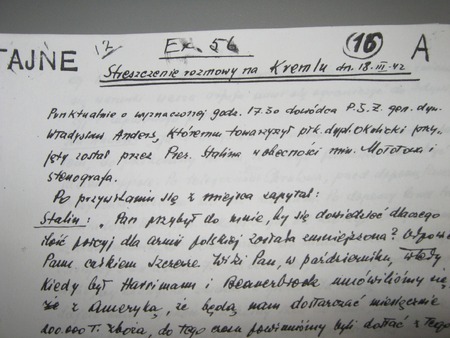 TAJNE 17 Ex. 56 (16) A
Streszczenie rozmowy na Kremlu dn. 18.III.42
Punktualnie o wyznaczonej godz. 17.30 dowódca P.S.Z. gen. dyw.
Władysław Anders, któremu towarzyszył płk. dypl. Okulicki przy-
jęty został przez Prez. Stalina w obecności min. Mołotowa i
stenografa.
Po przywitaniu się z miejsca zapytał:
Stalin: „Pan przybył do mnie, by się dowiedzieć dlaczego
ilość porcyj dla armii polskiej została zmniejszona? Odpowiem
Panu całkiem szczerze. Widzi Pan, w październiku, wtedy
kiedy był Harrimann i Beaverbrook umówiliśmy się,
z Ameryką, że będą nam dostarczać miesięcznie
200.000 T. zboża, do tego czasu powinniśmy byli dostać z tego